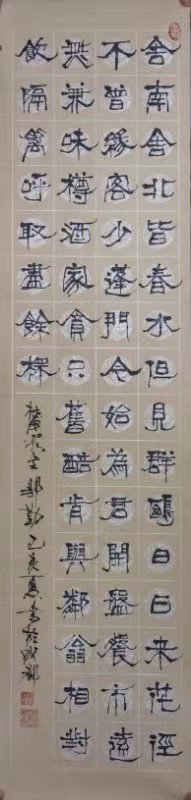 舍南舍北皆春水但見群鷗日日來花徑
不曾緣客少蓬門今始為君開盤餐市遠
無兼味樽酒家貧只舊醅肯與鄰翁相對
飲隔籬呼取盡餘杯
杜甫 乙亥夏書於成都